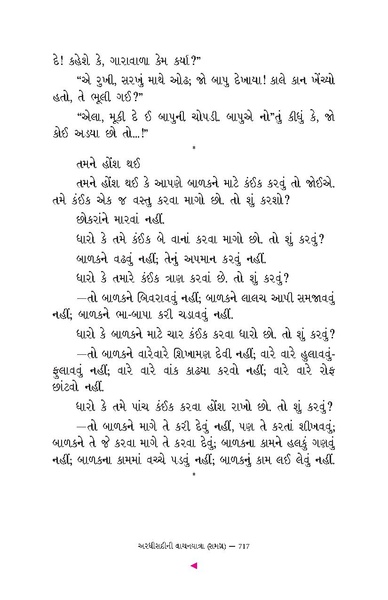 દે! કહેશે કે, ગારાવાળા કેમ કર્યાં?"
"એ રુખી, સરખું માથે ઓઢ; જો બાપુ દેખાયા! કાલે કાન ખેંચ્યો
હતો, તે ભૂલી ગઈ?"
"એલા, મૂકી દે ઈ બાપુની ચોપડી. બાપુએ નો"તું કીધું કે, જો
કોઈ અડયા છો તો...!"
*
તમને હોંશ થઈ
તમને હોંશ થઈ કે આપણે બાળકને માટે કંઈક કરવું તો જોઈએ.
તમે કંઈક એક જ વસ્તુ કરવા માગો છો. તો શું કરશો?
છોકરાંને મારવાં નહીં.
ધારો કે તમે કંઈક બે વાનાં કરવા માગો છો. તો શું કરવું?
બાળકને વઢવું નહીં; તેનું અપમાન કરવું નહીં.
ધારો કે તમારે કંઈક ત્રણ કરવાં છે. તો શું કરવું?
—તો બાળકને બિવરાવવું નહીં; બાળકને લાલચ આપી સમજાવવું
નહીં; બાળકને ભા-બાપા કરી ચડાવવું નહીં.
ધારો કે બાળકને માટે ચાર કંઈક કરવા ધારો છો. તો શું કરવું?
—તો બાળકને વારેવારે શિખામણ દેવી નહીં; વારે વારે હુલાવવું-
ફુલાવવું નહીં; વારે વારે વાંક કાઢયા કરવો નહીં; વારે વારે રોફ
છાંટવો નહીં.
ધારો કે તમે પાંચ કંઈક કરવા હોંશ રાખો છો. તો શું કરવું?
—તો બાળકને માગે તે કરી દેવું નહીં, પણ તે કરતાં શીખવવું;
બાળકને તે જે કરવા માગે તે કરવા દેવું; બાળકના કામને હલકું ગણવું
નહીં; બાળકના કામમાં વચ્ચે પડવું નહીં; બાળકનું કામ લઈ લેવું નહીં.
*
અરધીસદીની વાચનયાત્રા (સમગ્ર) — 717